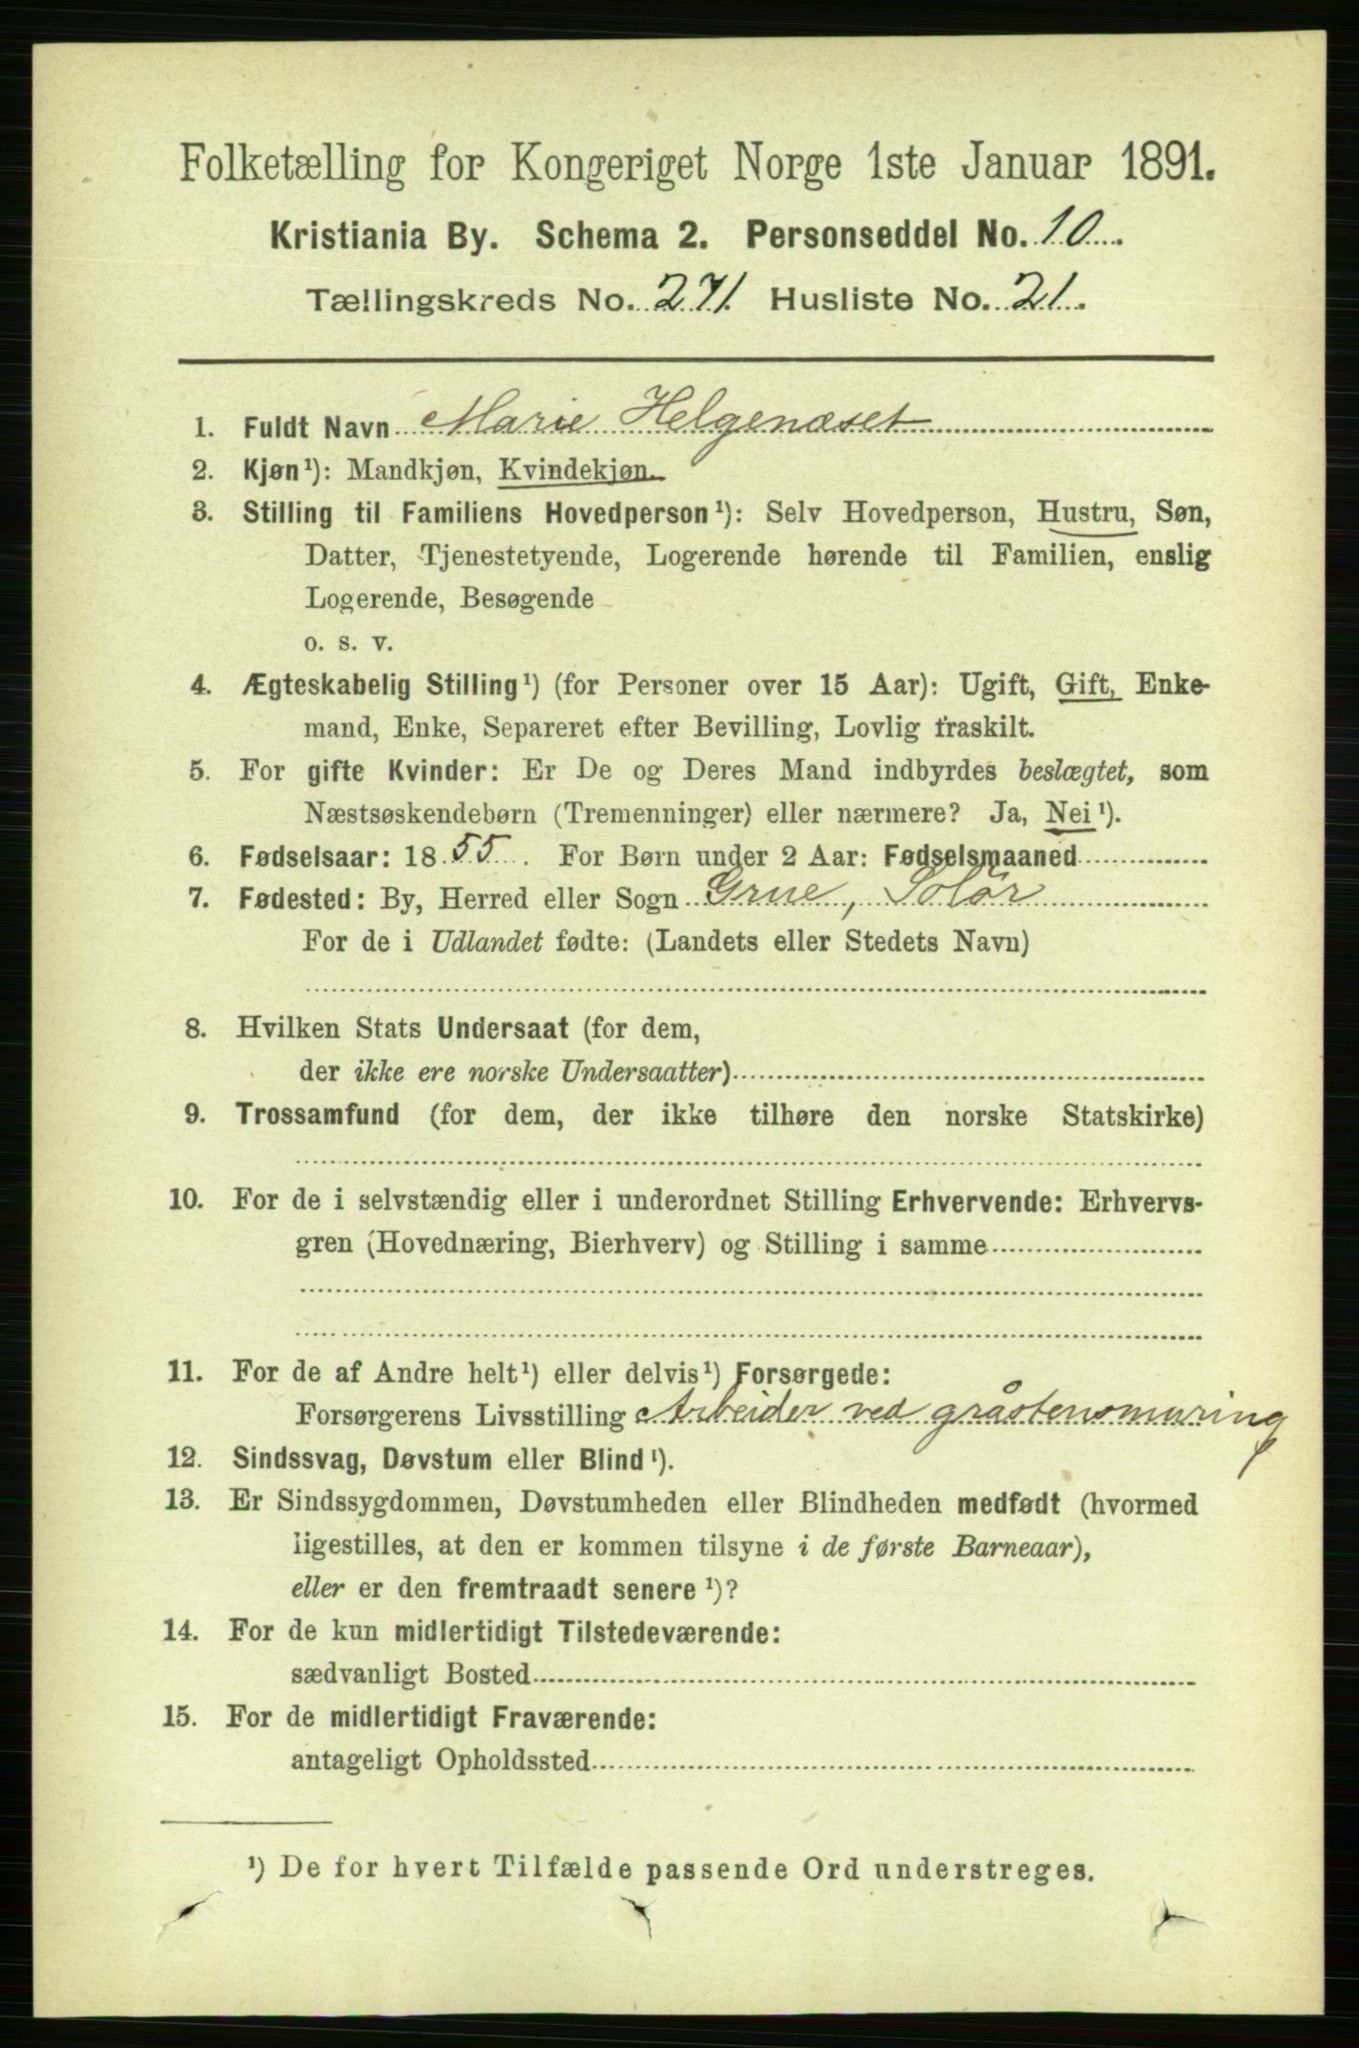 Folketælling for Kongeriget Norge 1ste Januar 1891.
Kristiania By. Schema 2. Personseddel No. 10.
Tællingskreds No. 271. Husliste No. 21.
1. Fuldt Navn Marie Helgenæset
2. Kjøn¹): Mandkjøn, Kvindekjøn.
3. Stilling til Familiens Hovedperson¹): Selv Hovedperson, Hustru, Søn,
Datter, Tjenestetyende, Logerende hørende til Familien, enslig
Logerende, Besøgende
o. s. v.
4. Ægteskabelig Stilling¹) (for Personer over 15 Aar): Ugift, Gift, Enke-
mand, Enke, Separeret efter Bevilling, Lovlig fraskilt.
5. For gifte Kvinder: Er De og Deres Mand indbyrdes beslægtet, som
Næstsøskendebørn (Tremenninger) eller nærmere? Ja, Nei¹).
6. Fødselsaar: 1855. For Børn under 2 Aar: Fødselsmaaned
7. Fødested: By, Herred eller Sogn Grue, Solør
For de i Udlandet fødte: (Landets eller Stedets Navn)
8. Hvilken Stats Undersaat (for dem,
der ikke ere norske Undersaatter)
9. Trossamfund (for dem, der ikke tilhøre den norske Statskirke)
10. For de i selvstændig eller i underordnet Stilling Erhvervende: Erhvervs-
gren (Hovednæring, Bierhverv) og Stilling i samme
11. For de af Andre helt¹) eller delvis¹) Forsørgede:
Forsørgerens Livsstilling Arbeider ved gråstensmuring
12. Sindssvag, Døvstum eller Blind¹).
13. Er Sindssygdommen, Døvstumheden eller Blindheden medfødt (hvormed
ligestilles, at den er kommen tilsyne i de første Barneaar),
eller er den fremtraadt senere¹)?
14. For de kun midlertidigt Tilstedeværende:
sædvanligt Bosted
15. For de midlertidigt Fraværende:
antageligt Opholdssted
¹) De for hvert Tilfælde passende Ord understreges.